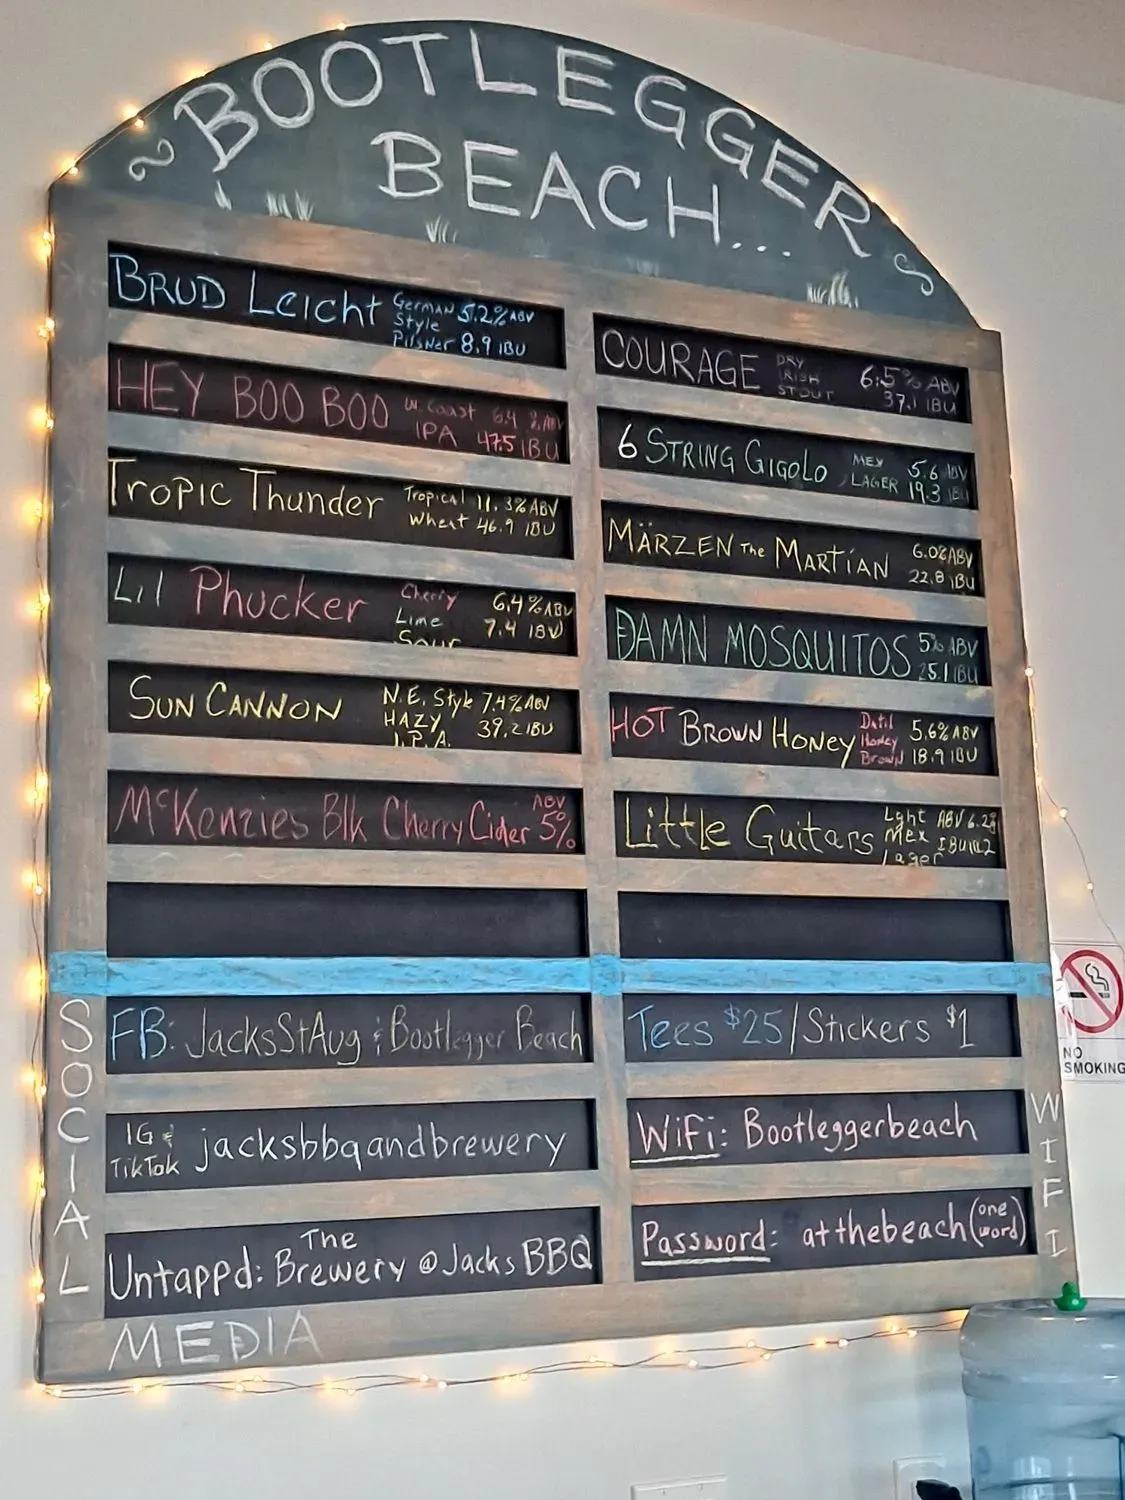 ~BOOTLEGGER
BEACH...
BRUD Leicht German 5.2% ABV
Style
Pilsner 8.9 IBU
HEY BOO BOO W. Coast 6.4 % ABV
IPA 47.5 IBU
Tropic Thunder Tropical 11.3% ABV
Wheat 46.9 IBU
Lil Phucker Cherry 6.4% ABV
Lime 7.4 IBU
Sour
SUN CANNON N.E. Style 7.4% ABV
HAZY 39.2 IBU
I.P.A.
McKenzies Blk Cherry Cider ABV
5%
COURAGE DRY 6.5% ABV
IRISH 37.1 IBU
STOUT
6 STRING GIGOLO MEX 5.6 ABV
LAGER 19.3 IBU
MÄRZEN THE MARTIAN 6.0% ABV
22.8 IBU
DAMN MOSQUITOS 5% ABV
25.1 IBU
HOT BROWN HONEY Datil 5.6% ABV
Honey 18.9 IBU
Brown
Little Guitars Lght ABV 6.2%
Mex IBU
lager
SOCIAL
MEDIA
FB: JacksStAug & Bootlegger Beach
IG &
TikTok jacksbbqandbrewery
The
Untappd: Brewery @ Jacks BBQ
Tees $25/Stickers $1
WIFI
WiFi: Bootleggerbeach
Password: atthebeach (one
word)
NO
SMOKING